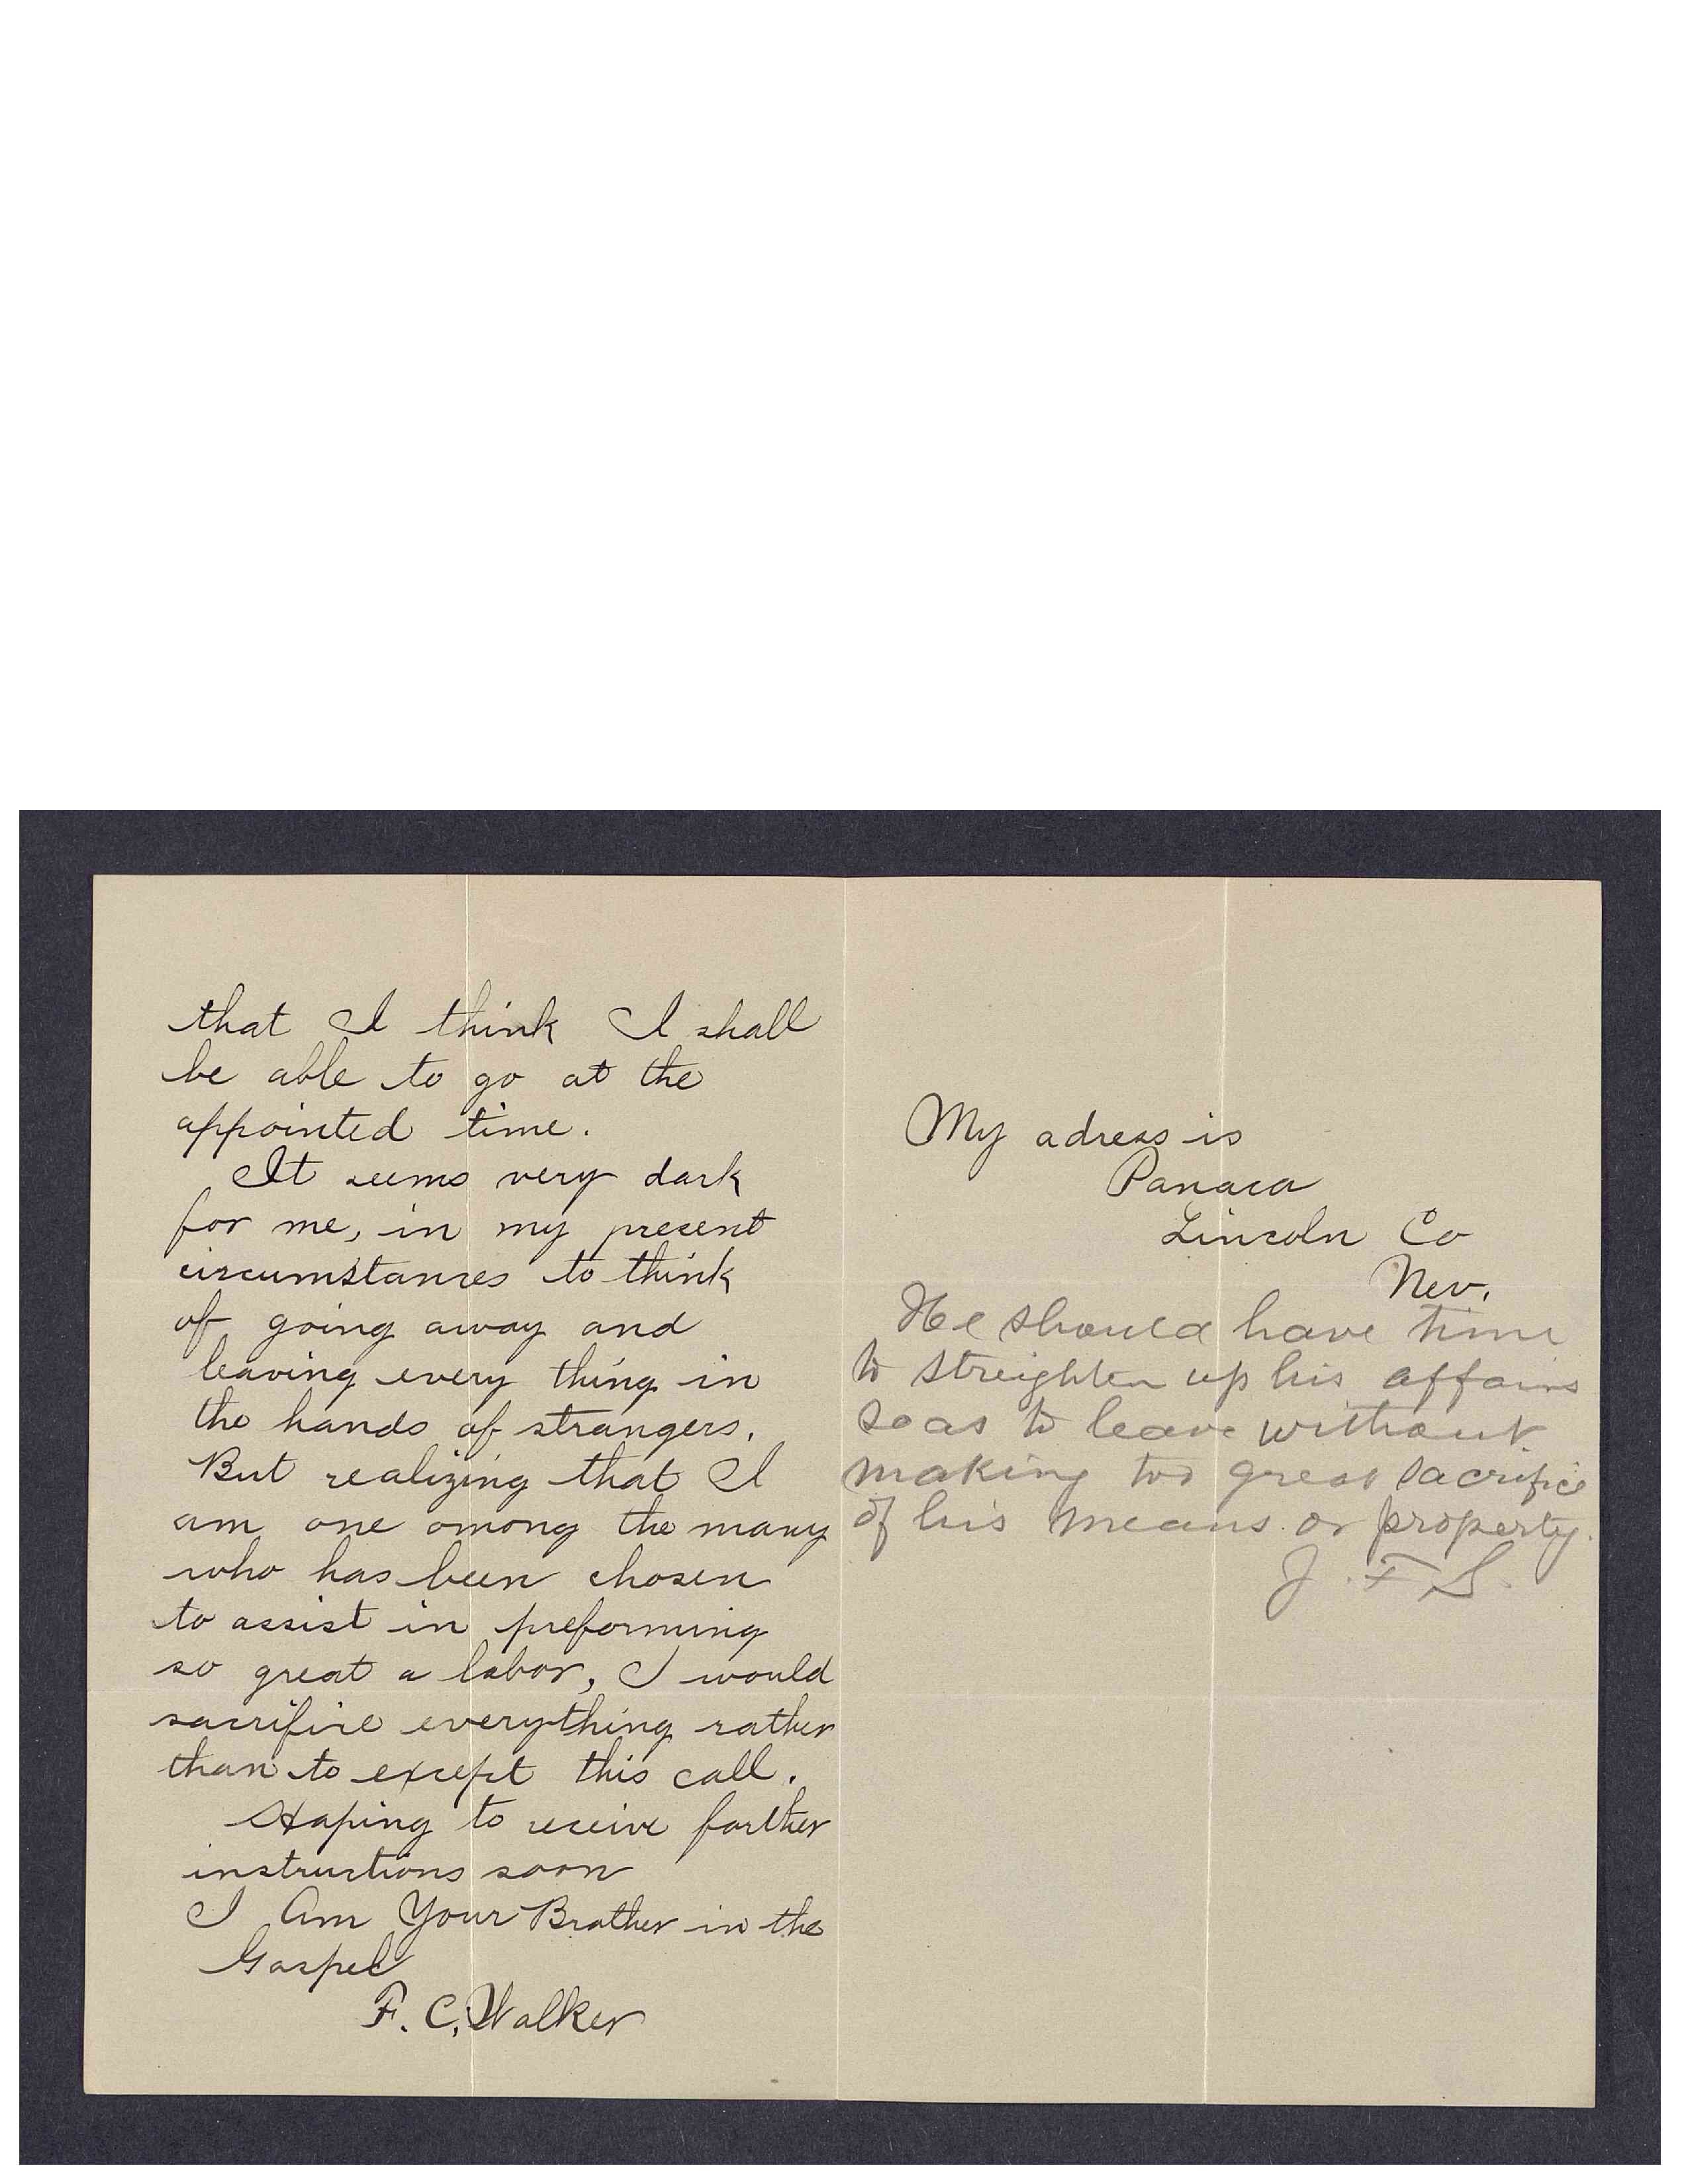 that I think I shall
be able to go at the
appointed time.
It seems very dark
for me, in my present
circumstances to think
of going away and
leaving every thing in
the hands of strangers.
But realizing that I
am one among the many
who has been chosen
to assist in preforming
so great a labor, I would
sacrifice everything rather
than to except this call.
Hoping to receive farther
instructions soon
I Am Your Brother in the
Gospel
F. C. Walker
My adress is
Panaca
Lincoln Co
Nev.
He should have time
to streighten up his affairs
so as to leave without
making too great sacrifice
of his means or property.
J. F S.